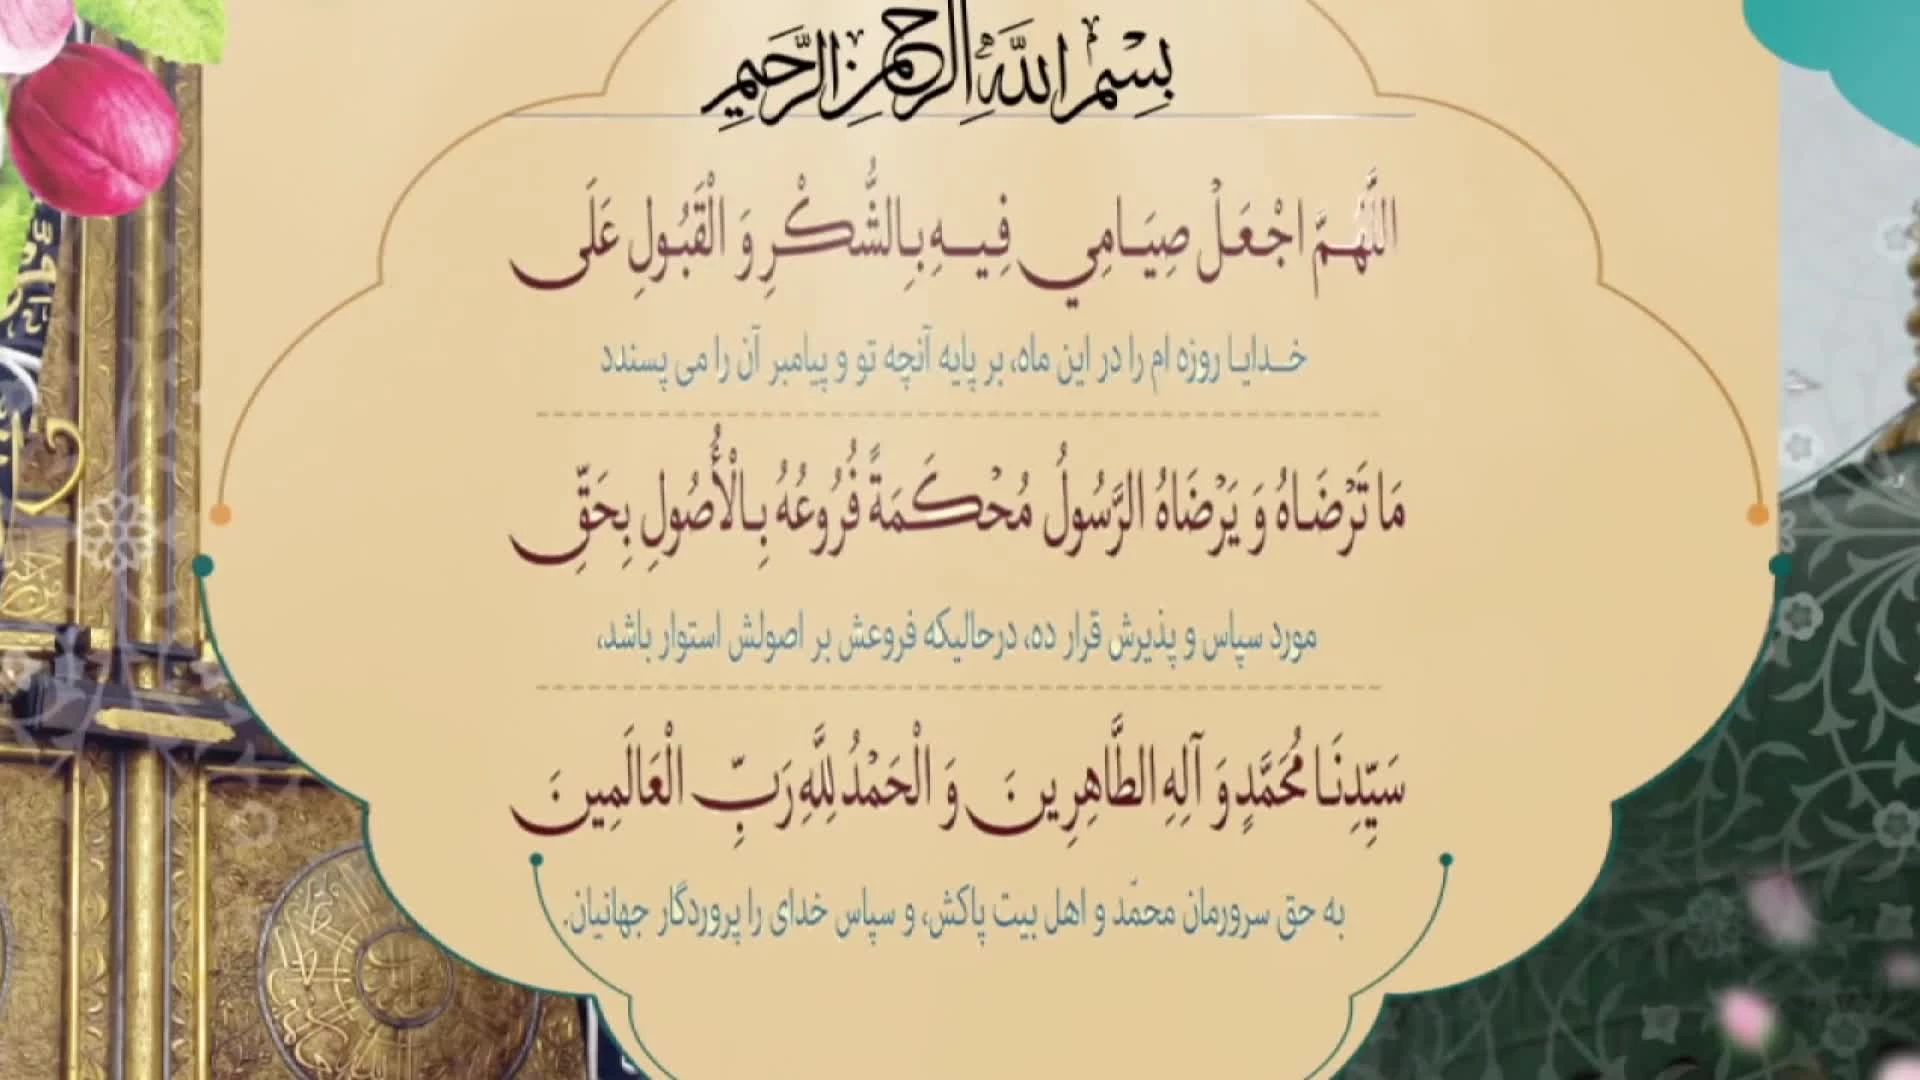 بِسْمِ اللَّهِ الرَّحْمَنِ الرَّحِيمِ
اللَّهُمَّ اجْعَلْ صِيَامِي فِيهِ بِالشُّكْرِ وَ الْقَبُولِ عَلَى
خدایا روزه ام را در این ماه، بر پایه آنچه تو و پیامبر آن را می پسندد
مَا تَرْضَاهُ وَ يَرْضَاهُ الرَّسُولُ مُحْكَمَةً فُرُوعُهُ بِالْأُصُولِ بِحَقِّ
مورد سپاس و پذیرش قرار ده، درحالیکه فروعش بر اصولش استوار باشد،
سَيِّدِنَا مُحَمَّدٍ وَ آلِهِ الطَّاهِرِينَ وَ الْحَمْدُ لِلَّهِ رَبِّ الْعَالَمِينَ
به حق سرورمان محمّد و اهل بیت پاکش، و سپاس خدای را پروردگار جهانیان.